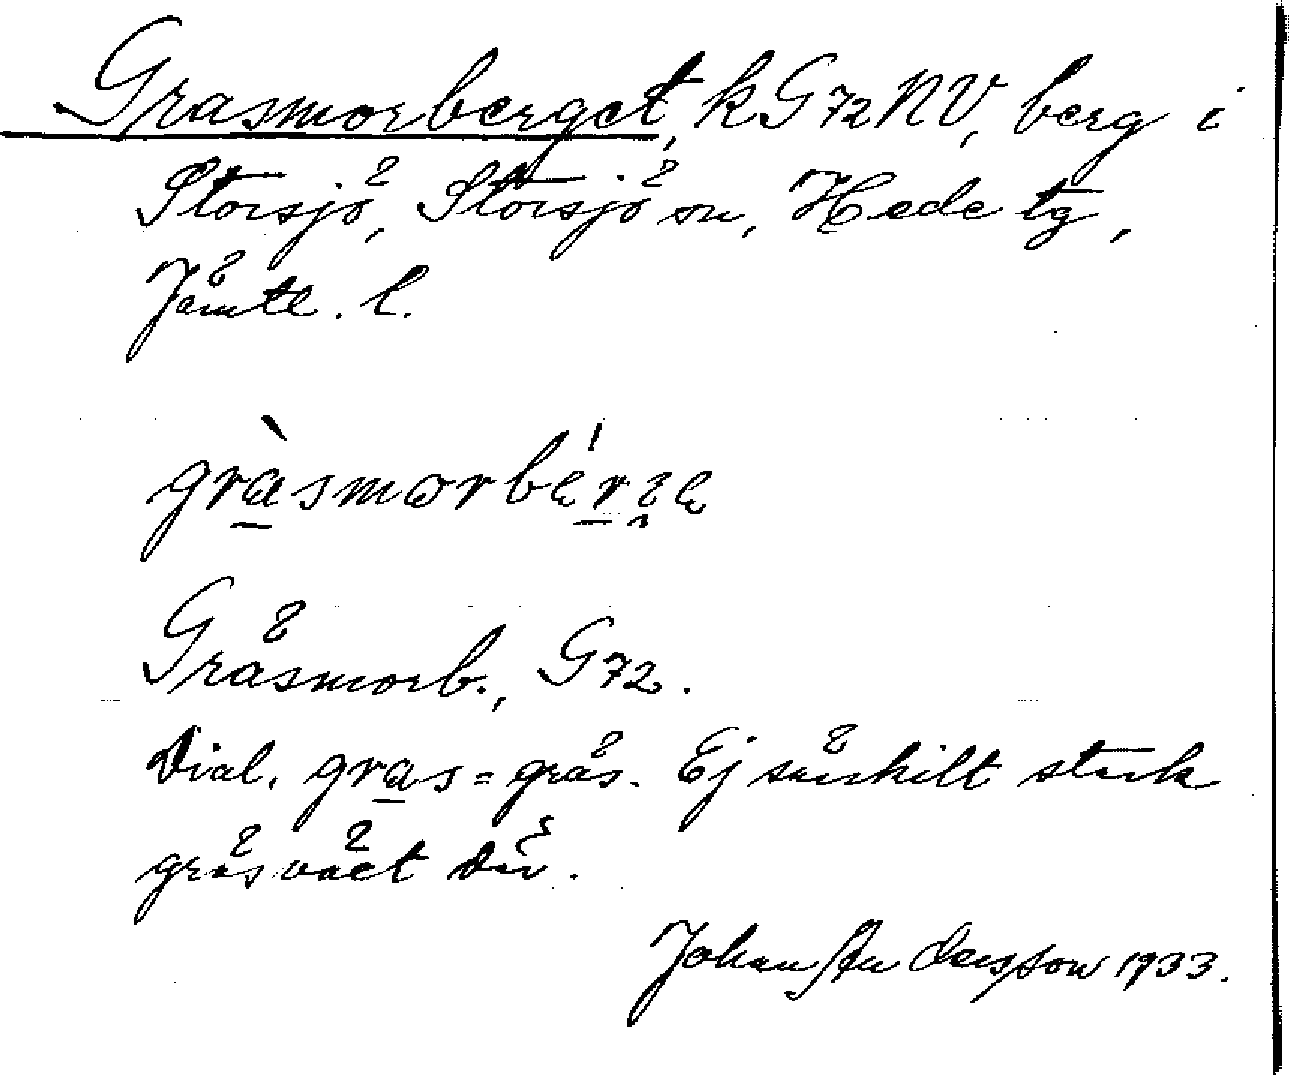 Grasmorberget, kG72NV, berg i
Storsjö, Storsjö sn, Hede tg,
Jämtl. l.
gràsmorbérge
Gräsmorb., G72.
Dial. gras = gräs. Ej särskilt stark
gräsväxt där.
Johan Andersson 1933.